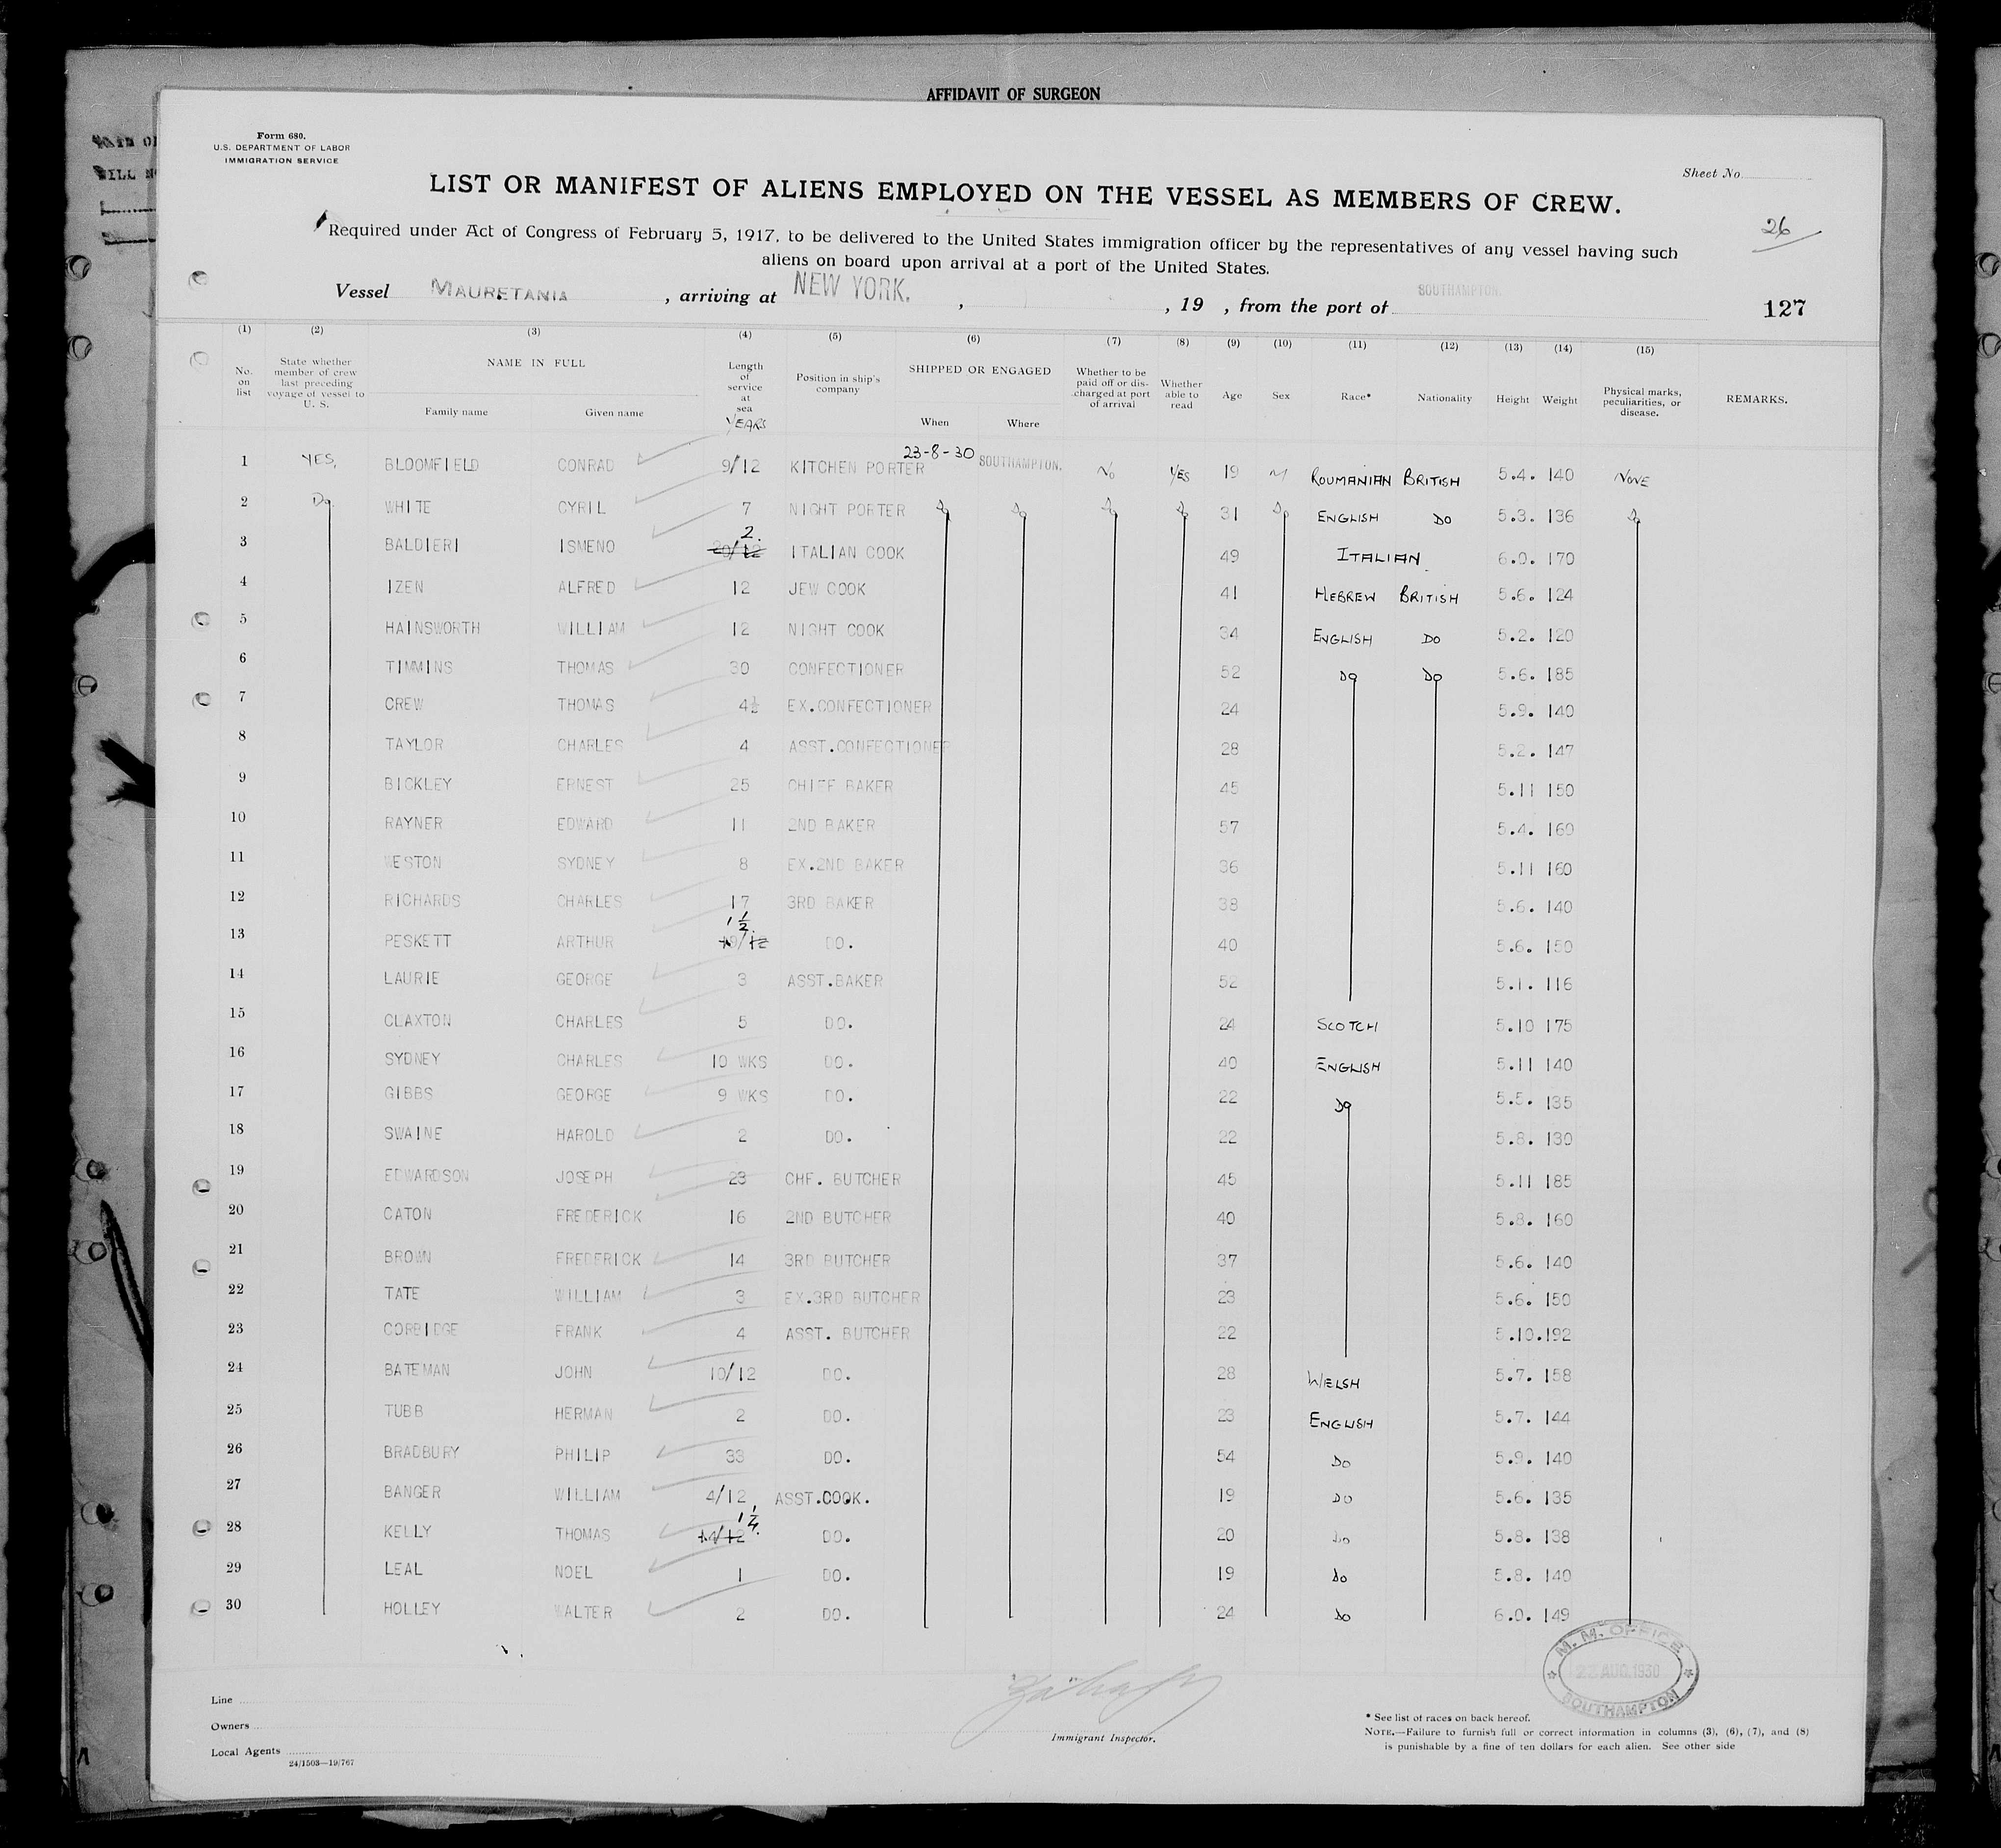 AFFIDAVIT OF SURGEON
Form 680.
U.S. DEPARTMENT OF LABOR
IMMIGRATION SERVICE
Sheet No.
LIST OR MANIFEST OF ALIENS EMPLOYED ON THE VESSEL AS MEMBERS OF CREW.
26
Required under Act of Congress of February 5, 1917, to be delivered to the United States immigration officer by the representatives of any vessel having such
aliens on board upon arrival at a port of the United States.
Vessel MAURETANIA, arriving at NEW YORK. , , 19 , from the port of SOUTHAMPTON. 127
(1) (2) (3) (4) (5) (6) (7) (8) (9) (10) (11) (12) (13) (14) (15)
No. on list State whether member of crew last preceding voyage of vessel to U. S. NAME IN FULL Family name Given name Length of service at sea YEARS Position in ship's company SHIPPED OR ENGAGED When Where Whether to be paid off or discharged at port of arrival Whether able to read Age Sex Race* Nationality Height Weight Physical marks, peculiarities, or disease. REMARKS.
1 YES, BLOOMFIELD CONRAD 9/12 KITCHEN PORTER 23-8-30 SOUTHAMPTON. No YES 19 M ROUMANIAN BRITISH 5.4. 140 NONE
2 Do WHITE CYRIL 7 NIGHT PORTER Do Do Do Do 31 Do ENGLISH DO 5.3. 136 Do
3 BALDIERI ISMENO 2. ITALIAN COOK 49 ITALIAN 6.0. 170
4 IZEN ALFRED 12 JEW COOK 41 HEBREW BRITISH 5.6. 124
5 HAINSWORTH WILLIAM 12 NIGHT COOK 34 ENGLISH DO 5.2. 120
6 TIMMINS THOMAS 30 CONFECTIONER 52 DO DO 5.6. 185
7 CREW THOMAS 4½ EX.CONFECTIONER 24 5.9. 140
8 TAYLOR CHARLES 4 ASST.CONFECTIONER 28 5.2. 147
9 BICKLEY ERNEST 25 CHIEF BAKER 45 5.11 150
10 RAYNER EDWARD 11 2ND BAKER 57 5.4. 160
11 WESTON SYDNEY 8 EX.2ND BAKER 36 5.11 160
12 RICHARDS CHARLES 17 3RD BAKER 38 5.6. 140
13 PESKETT ARTHUR 1½ DO. 40 5.6. 150
14 LAURIE GEORGE 3 ASST.BAKER 52 5.1. 116
15 CLAXTON CHARLES 5 DO. 24 SCOTCH 5.10 175
16 SYDNEY CHARLES 10 WKS DO. 40 ENGLISH 5.11 140
17 GIBBS GEORGE 9 WKS DO. 22 DO 5.5. 135
18 SWAINE HAROLD 2 DO. 22 5.8. 130
19 EDWARDSON JOSEPH 23 CHF. BUTCHER 45 5.11 185
20 CATON FREDERICK 16 2ND BUTCHER 40 5.8. 160
21 BROWN FREDERICK 14 3RD BUTCHER 37 5.6. 140
22 TATE WILLIAM 3 EX.3RD BUTCHER 23 5.6. 150
23 CORBIDGE FRANK 4 ASST. BUTCHER 22 5.10.192
24 BATEMAN JOHN 10/12 DO. 28 WELSH 5.7. 158
25 TUBB HERMAN 2 DO. 23 ENGLISH 5.7. 144
26 BRADBURY PHILIP 33 DO. 54 DO 5.9. 140
27 BANGER WILLIAM 4/12 ASST.COOK. 19 DO 5.6. 135
28 KELLY THOMAS 1¼. DO. 20 Do 5.8. 138
29 LEAL NOEL 1 DO. 19 Do 5.8. 140
30 HOLLEY WALTER 2 DO. 24 Do 6.0. 149
M. M. OFFICE
23 AUG.1930
SOUTHAMPTON
Line
Owners
Local Agents
24/1503—19/767
Immigrant Inspector.
* See list of races on back hereof.
NOTE.—Failure to furnish full or correct information in columns (3), (6), (7), and (8)
is punishable by a fine of ten dollars for each alien. See other side